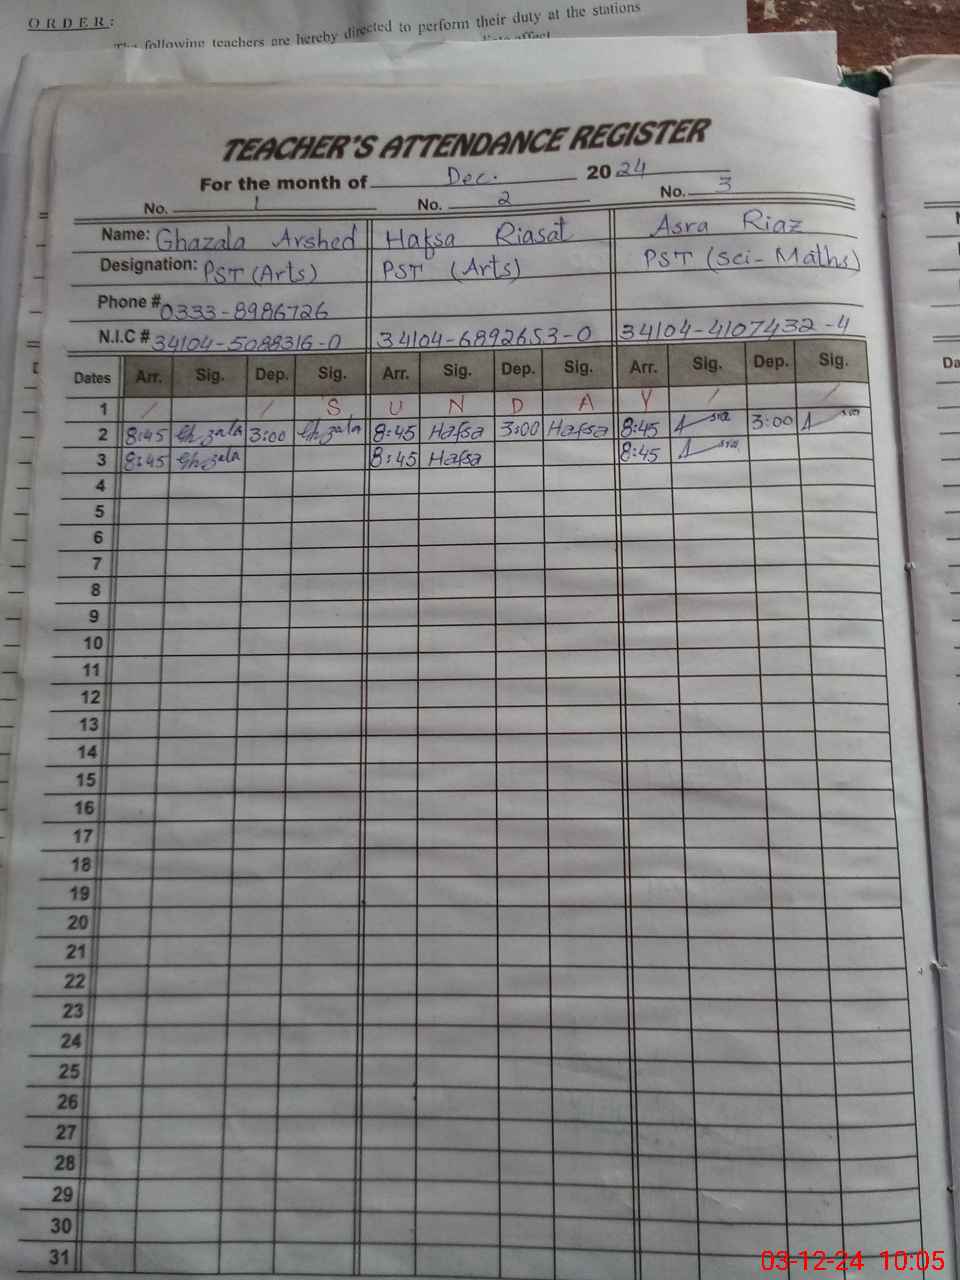 ORDER:
The following teachers are hereby directed to perform their duty at the stations
effect
TEACHER'S ATTENDANCE REGISTER
For the month of Dec. 2024
No. 1 No. 2 No. 3
Name: Ghazala Arshed Hafsa Riasat Asra Riaz
Designation: PST (Arts) PST (Arts) PST (Sci-Maths)
Phone # 0333-8986726
N.I.C # 34104-5088316-0 34104-6892653-0 34104-4107432-4
Dates Arr. Sig. Dep. Sig. Arr. Sig. Dep. Sig. Arr. Sig. Dep. Sig.
1 / / S U N D A Y / /
2 8:45 Ghzala 3:00 Ghzala 8:45 Hafsa 3:00 Hafsa 8:45 Asra 3:00 Asra
3 8:45 Ghzala 8:45 Hafsa 8:45 Asra
4
5
6
7
8
9
10
11
12
13
14
15
16
17
18
19
20
21
22
23
24
25
26
27
28
29
30
31
Da
03-12-24 10:05